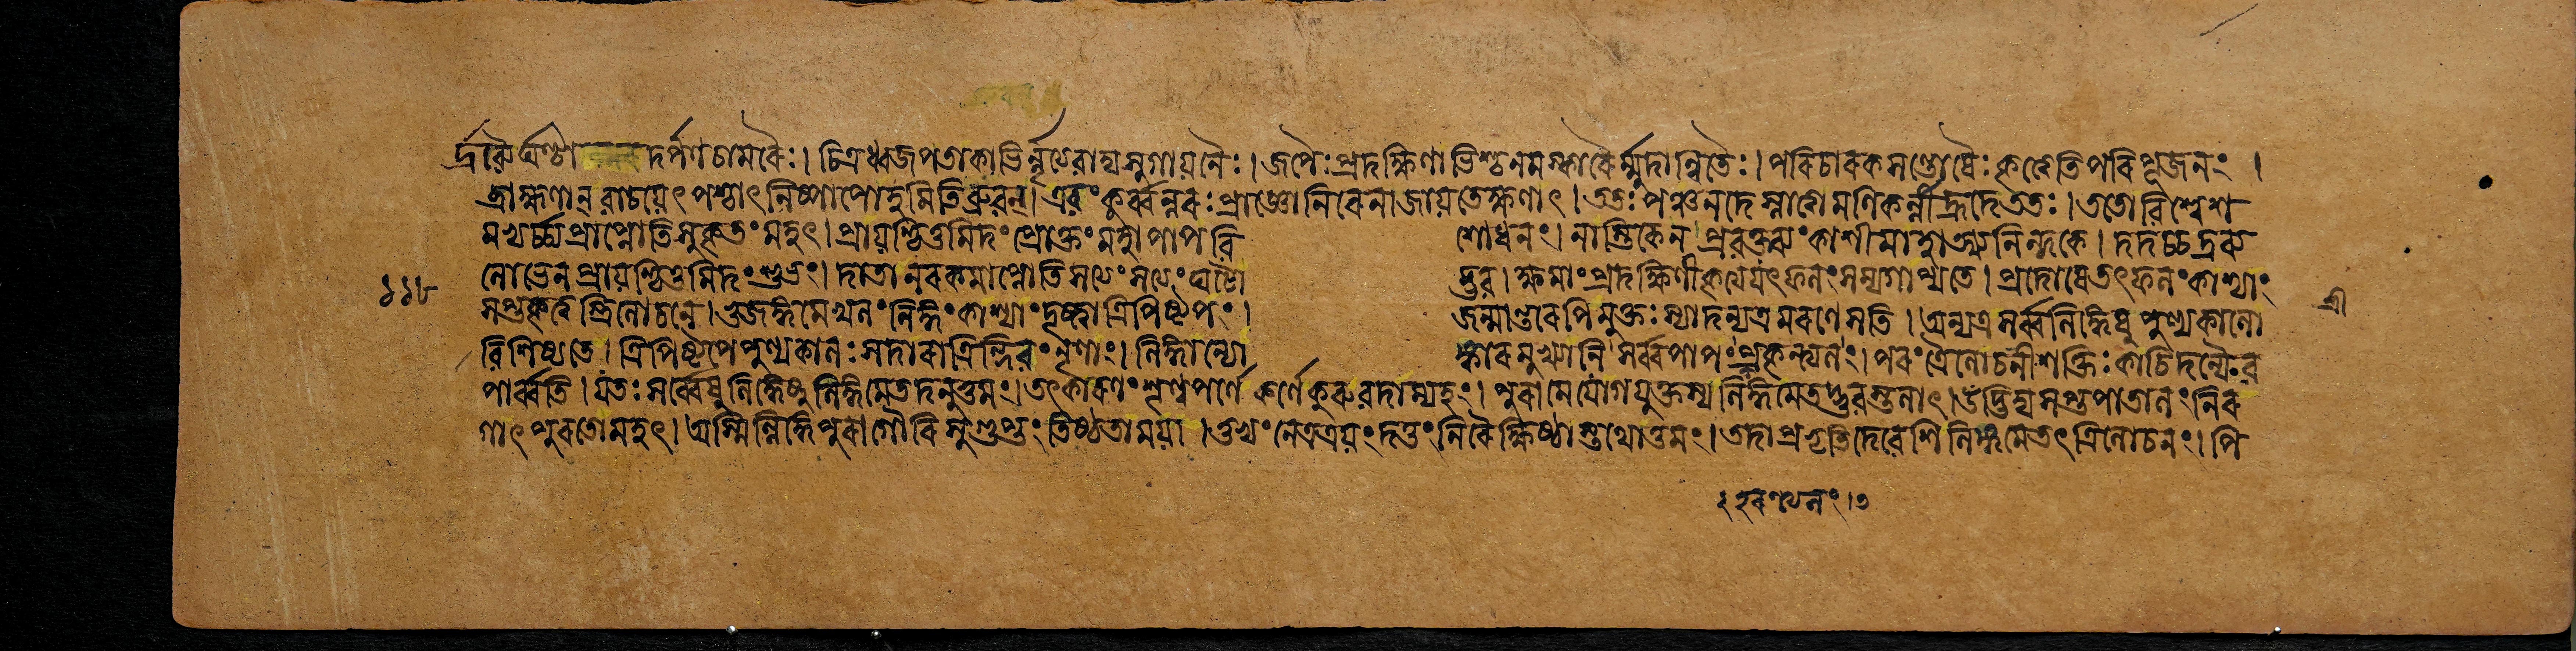 র্দ্রব্যৈর্ঘণ্টাদর্পণচামরৈঃ। চিত্রধ্বজপতাকাভির্নৃত্যবাদ্যসুগায়নৈঃ। জপৈঃ প্রদক্ষিণাভিশ্চ নমস্কারৈর্ম্মুদান্বিতৈঃ। পরিচারকসন্তোষৈঃ কৃত্বেতি পরিপূজনং।
ব্রাহ্মণান্ বাচয়েৎ পশ্চাৎ নিষ্পাপোহমিতি ব্রুবন্। এবং কুর্ব্বন্নরঃ প্রাজ্ঞো নিরেনা জায়তে ক্ষণাৎ। ততঃ পঞ্চনদে স্নাত্বা মণিকর্ণীহ্রদে ততঃ। ততো বিশ্বেশ
মভ্যর্চ্চ্য প্রাপ্নোতি সুকৃতং মহৎ। প্রায়শ্চিত্তমিদং প্রোক্তং মহাপাপবি শোধনং। নাস্তিকে ন প্রবক্তব্যং কাশীমাহাত্ম্যনিন্দকে। দদচ্চ দ্রব্য
লোভেন প্রায়শ্চিত্তমিদং শুভং। দাতা নরকমাপ্নোতি সত্যং সত্যং ঘটো দ্ভব। ক্ষমাং প্রদক্ষিণীকৃত্য যৎ ফলং সম্যগাপ্যতে। প্রদোষে তৎ ফলং কাশ্যাং
১১৮
সপ্তকৃত্বস্ত্রিলোচনে। ভুজঙ্গমেখলং লিঙ্গং কাশ্যাং দৃষ্ট্বা ত্রিপিষ্টপং। জন্মান্তরেপি মুক্তঃ স্যাদন্যত্র মরণে সতি। অন্যত্র সর্ব্বলিঙ্গেষু পুণ্যকালো
শ্রী
বিশিষ্যতে। ত্রিপিষ্টপে পুণ্যকালঃ সদা রাত্রিন্দিবং নৃণাং। লিঙ্গান্যো ঙ্কারমুখ্যানি সর্ব্বপাপপ্রকৃন্ত্যলং। পরং ত্রৈলোচনী শক্তিঃ কাচিদন্যৈব
পার্ব্বতি। যতঃ সর্ব্বেষু লিঙ্গেষু লিঙ্গমেতদনুত্তমং। তৎকারণং শৃণ্বপর্ণে কর্ণে কুরু বদাম্যহং। পুরা মে যোগযুক্তস্য লিঙ্গমেতদ্ভুবস্তলাৎ। উদ্ভিদ্য সপ্তপাতালং নির
গাৎ পুরতো মহৎ। অস্মিল্লিঙ্গে পুরা গৌরি সুগুপ্তং তিষ্ঠতা ময়া। তুভ্যং নেত্রত্রয়ং দত্তং নিরৈক্ষিষ্ঠাস্তথোত্তমং। তদাপ্রভৃতি দেবেশি লিঙ্গমেতৎ ত্রিলোচনং। বি